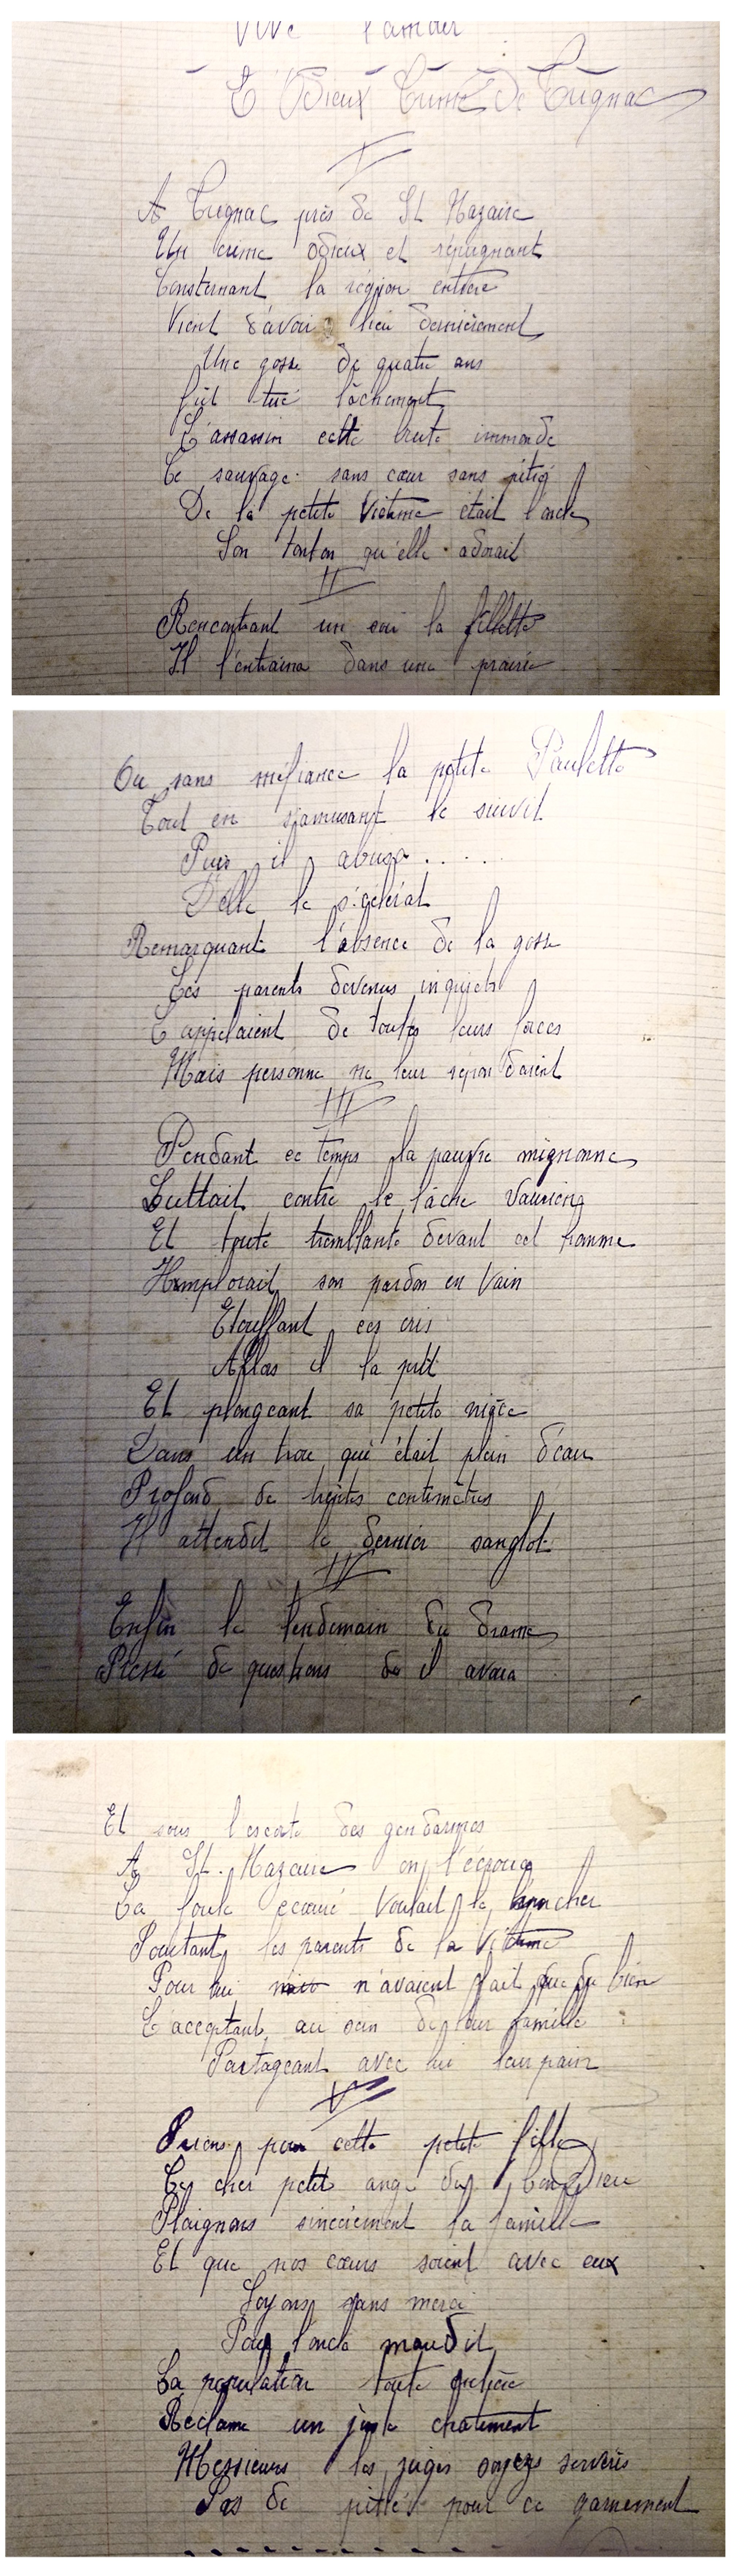 Vive l'amour
L'Odieux Crime de Trignac
I
A Trignac près de St Nazaire
Un crime odieux et répugnant
Consternant la région entière
Vient d'avoir lieu dernièrement
Une gosse de quatre ans
fut tué lâchement
L'assassin cette brute immonde
Ce sauvage sans cœur sans pitié
De la petite victime était l'oncle
Son tonton qu'elle adorait
II
Rencontrant un soir la fillette
Il l'entraina dans une prairie
Ou sans méfiance la petite Paulette
Tout en s'amusant le suivit
Puis il abusa . . . . .
D'elle le scélérat
Remarquant l'absence de la gosse
Les parents devenus inquiets
L'appelaient de toutes leurs forces
Mais personne ne leur repondaient
III
Pendant ce temps la pauvre mignonne
Luttait contre le lâche vaurien
Et toute tremblante devant cet homme
Implorait son pardon en vain
Etouffant ces cris
Hélas il la prit
Et plongeant sa petite nièce
Dans un trou qui était plein d'eau
Profond de trentes centimètres
Il attendit le dernier sanglot
IV
Enfin le lendemain du drame
Pressé de questions il avoua
Et sous l'escorte des gendarmes
A St. Nazaire on l'écroua
La foule ecœuré voulait le lyncher
Pourtant les parents de la victime
Pour lui n'avaient fait que du bien
L'acceptant au sein de leur famille
Partageant avec lui leur pain
V
Prions pour cette petite fille
Ce cher petit ange du bon Dieu
Plaignons sincèrement la famille
Et que nos cœurs soient avec eux
Soyons sans merci
Pour l'oncle maudit
La population toute entière
Réclame un juste chatiment
Messieurs les juges soyez serveres
Pas de pitié pour ce garnement